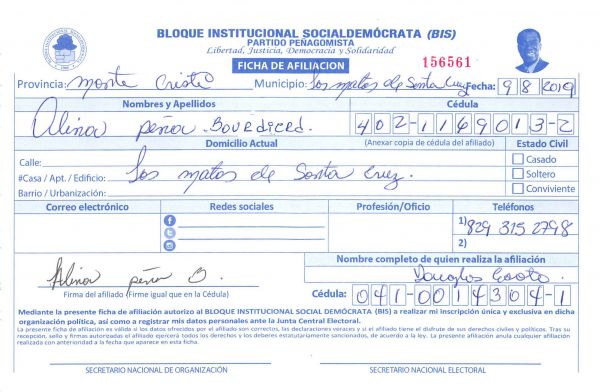 BLOQUE INSTITUCIONAL SOCIALDEMÓCRATA (BIS)
PARTIDO PEÑAGOMISTA
Libertad, Justicia, Democracia y Solidaridad
FICHA DE AFILIACION
156561
Provincia: Monte Cristi Municipio: Los matos de Santa Cruz Fecha: 9 8 2019
Nombres y Apellidos Cédula
Alina peña Bourdierd. 402-1169013-2
Domicilio Actual (Anexar copia de cédula del afiliado) Estado Civil
Calle: Casado
#Casa / Apt. / Edificio: Los matos de Santa Cruz. Soltero
Barrio / Urbanización: Conviviente
Correo electrónico Redes sociales Profesión/Oficio Teléfonos
1) 829 315 2798
2)
Nombre completo de quien realiza la afiliación
Alina peña B Douglas
Firma del afiliado (Firme igual que en la Cédula) Cédula: 041-0014304-1
Mediante la presente ficha de afiliación autorizo al BLOQUE INSTITUCIONAL SOCIAL DEMÓCRATA (BIS) a realizar mi inscripción única y exclusiva en dicha
organización política, así como a registrar mis datos personales ante la Junta Central Electoral.
La presente ficha de afiliación es válida si los datos ofrecidos por el afiliado son correctos, las declaraciones veraces y si el afiliado tiene el disfrute de sus derechos civiles y políticos. Tras su
recepción, sello y firmas autorizadas el afiliado ejercerá todos los derechos y los deberes estatutariamente sancionados, de acuerdo a la ley. La presente afiliación anula cualquier afiliación
realizada con anterioridad a la fecha que aparece en esta ficha.
SECRETARIO NACIONAL DE ORGANIZACIÓN SECRETARIO NACIONAL ELECTORAL